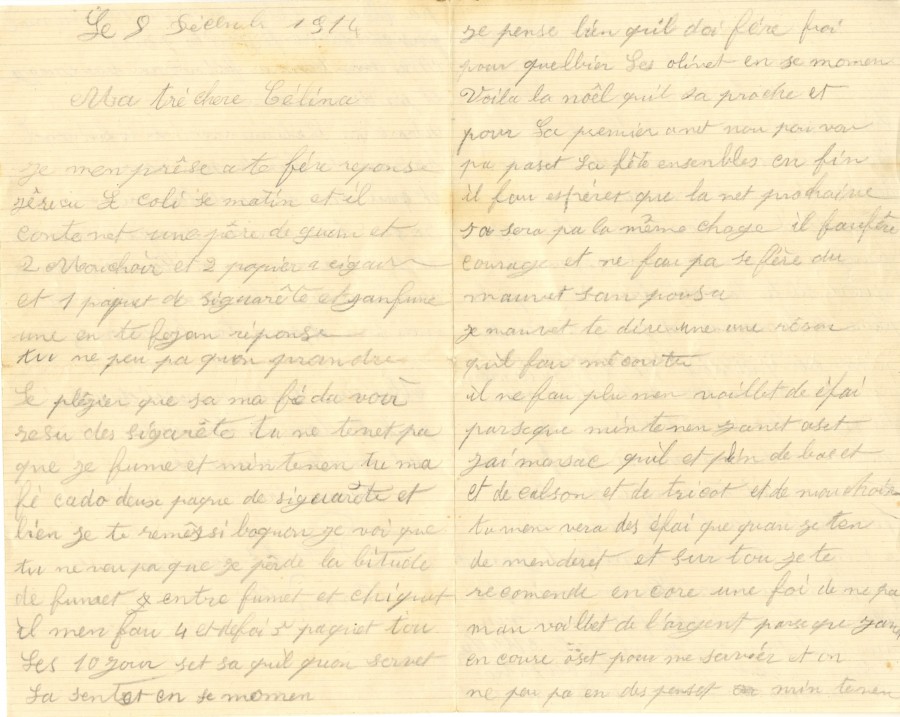 Le 9 Décembr 1914
Ma tré chere Célina
je men prêse a te fére reponse
jêrecu le coli se matin et il
contenet une pêre de guan et
2 Mouchoir et 2 papier a cigar
et 1 paquet de siguarête et janfume
une en te fezan réponse
tu ne peu pa quon prandre
le plézier que sa ma fé davoir
resu des sigarête tu ne tenet pa
que je fume et mintenen tu ma
fé cado deuxe paque de siguarête et
bien je te remêrsi boquou je voi que
tu ne veu pa que je pêrde la bitude
de fumet entre fumet et chiquet
il men fau 4 et défoi 5 paquet tou
les 10 jour set sa qu'il quon servet
la sentet en se momen
je pense bien quil doi fére froi
pour queullier les olivet en se momen
Voila la noêl quil saproche et
pour la premier anet nou pou von
pa paset la fête ensenbles en fin
il fau espérer que la net prochaine
sa sera pa la même choge il faufére
courage et ne fau pa se fère du
mauvet san pousa
je nauret te dire une une résou
qu'il fau mécoutu
il ne fau plu men voillet de éfai
parseque mintenen janet aset
jai mon sac qu'il et plin de bas et
et de calson et de tricot et de mouchoir
tu men vera des éfai que quan je ten
de menderet et sur tou je te
recomende encore une foi de ne pa
man voillet de l'argent parseque jan
en coure aset pour me servir et on
ne peu pa en des penset mintenen